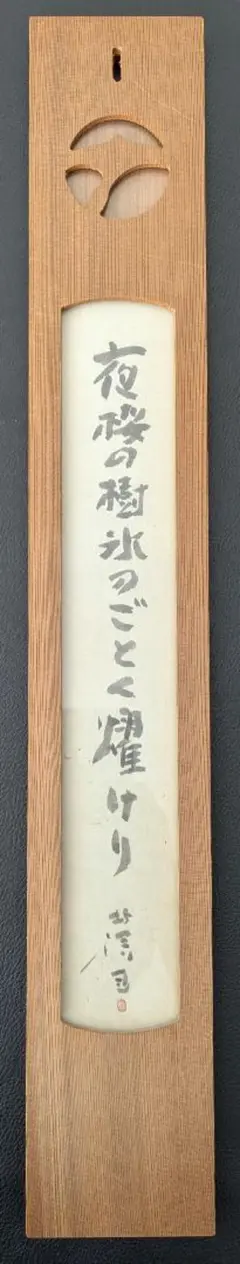 夜桜の樹氷のごとく耀けり